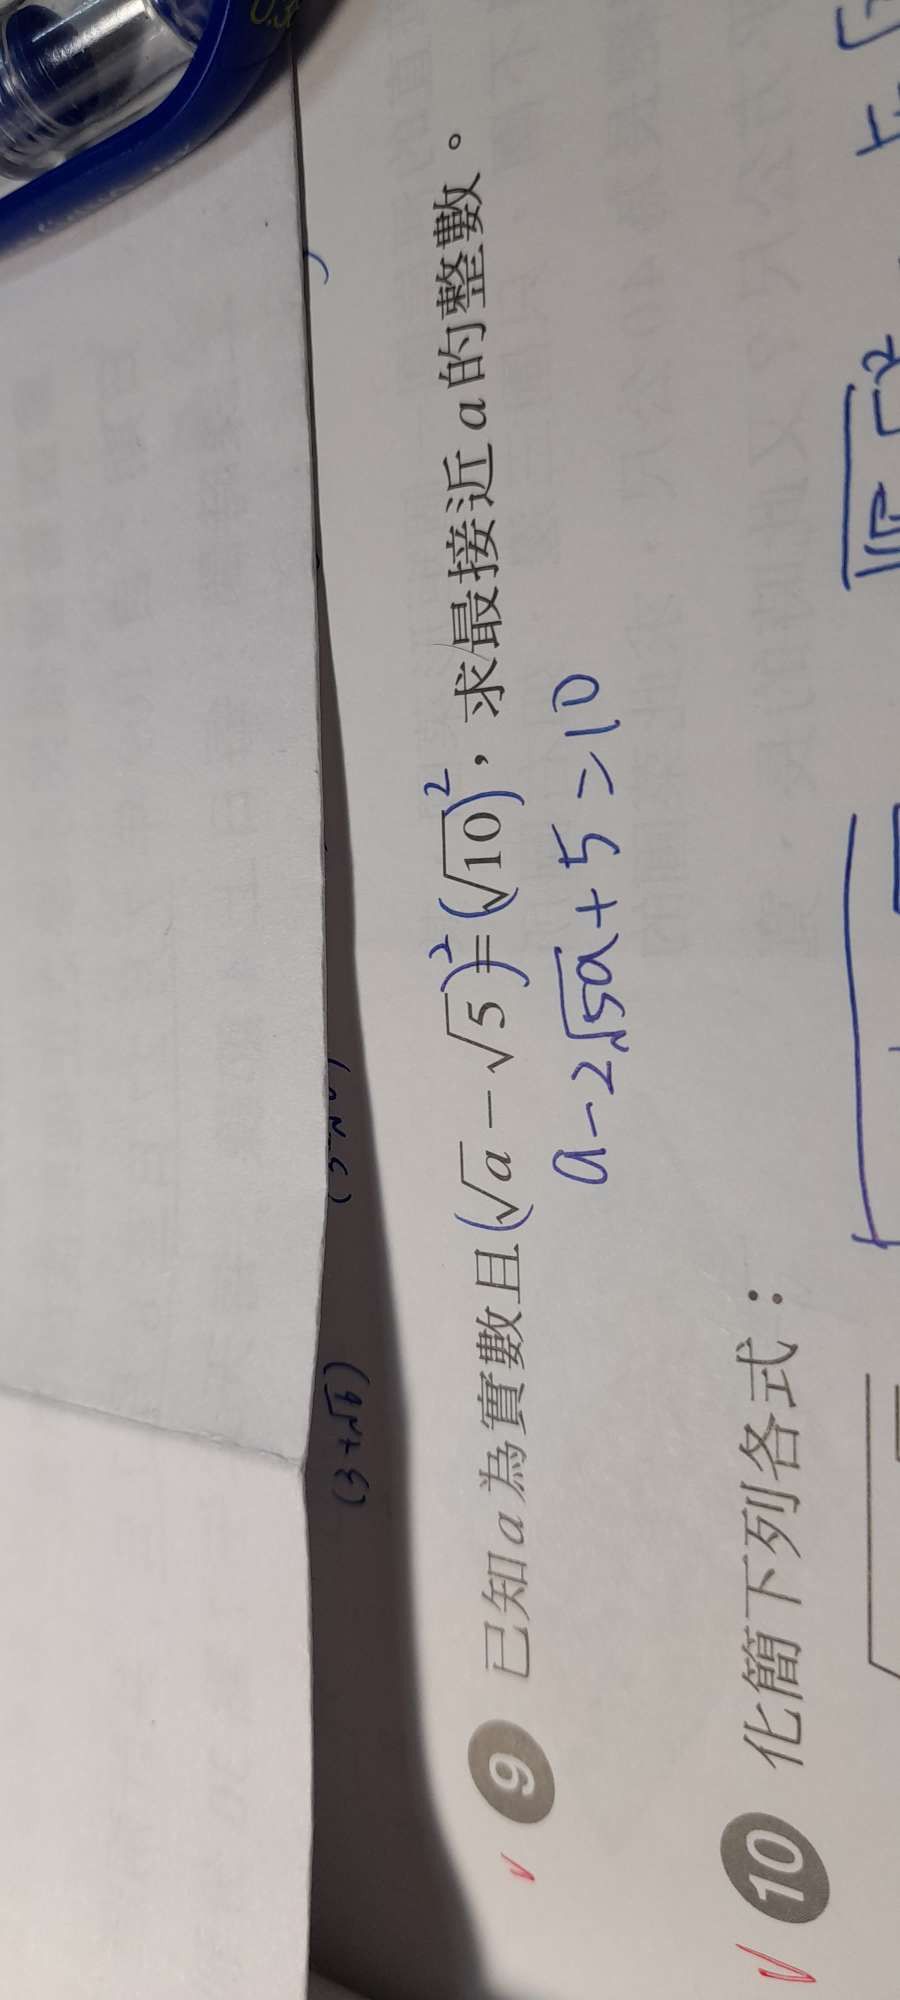 0.38
(3+√6)
9 已知a為實數且(√a－√5)²=(√10)²，求最接近a的整數。
a-2√5a+5=10
10 化簡下列各式：